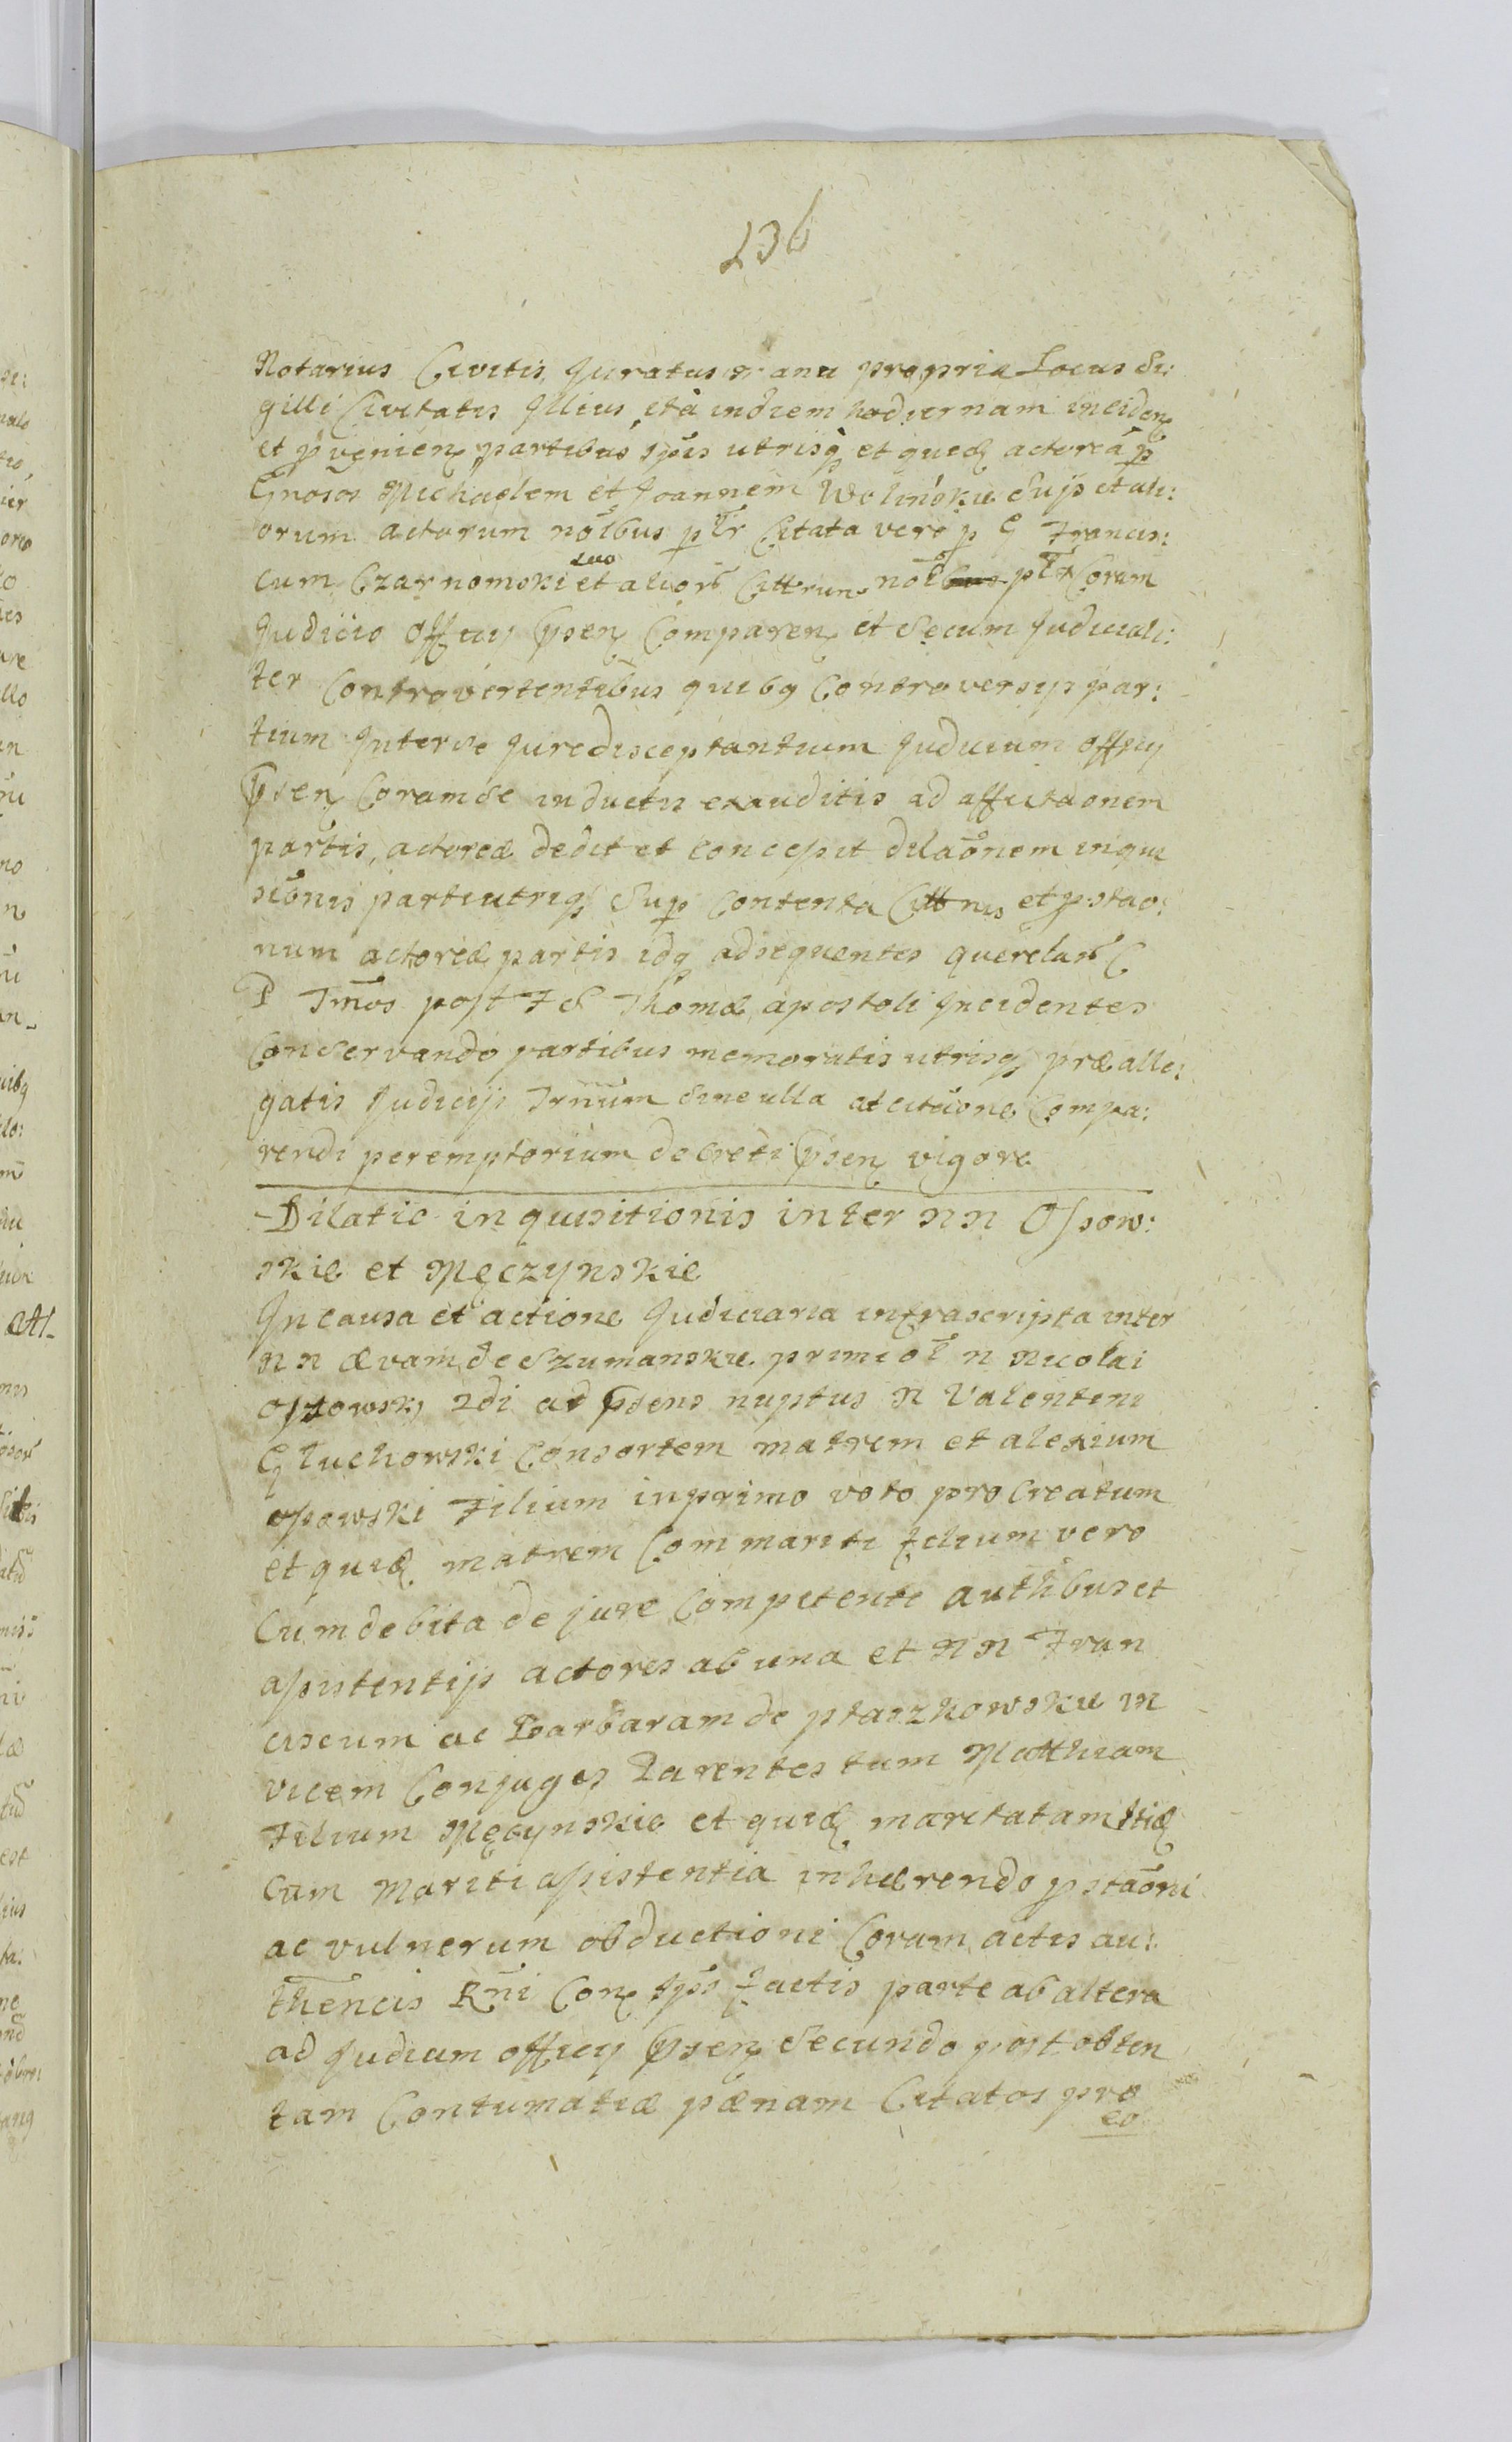 236
Notarius Civitis Juratus manu propria Locus Si:
gilli Civitatis Illius, et à in diem hodiernam inciden
et pvenien partibus ipis utrisq et quid actorea p
Gnosos Michaelem et Joannem Wolinskie Suis et ali:
orum actorum noibus p Citata vero p G Francis:
cum Czarnomski suo et alior Cittrum noe Coram
Judicio Officij psen Comparen et Secum Judiciali:
ter Controvertentibus quibq Controversijs par:
tium Inter se Jure disceptantium Judicium officij
psen Coram se inductis exauditis ad affectaonem
partis actoreæ dedit et concepit dilaonem inqui
sionis parti utriq Sup contenta Cittnis et pstao:
num actoreæ partis idq ad sequentes querelar C
P Tmos post F S Thomæ apostoli Incidentes
Conservando partibus memoratis utrisq præalle:
gatis Judicijs Trnum Sine ulla atcitaione Compa:
rendi peremptorium decreti psen vigore
Dilatio inquisitionis inter NN Ossow:
skie et Męczynskie
In causa et actione Judiciaria infrascripta inter
NN Evam de Szumanskie primi ol n Nicolai
Ossowski 2di ad psens nuptus N Valentini
Głuchowski Consortem matrem et alexium
ossowski Filium in primo voto procreatum
et quid matrem Com mariti filium vero
Cum debita de jure Competenti authbus et
assistentijs actores ab una et NN Fran
ciscum ac Barbaram de ptaszkowskie in
vicem Conjuges Parentes tum Matthiam
Filium Męcynskie et quid maritatam
Cum Mariti assistentia inhærendo pstaoni
ac vulnerum obductioni Coram actis au:
thencis Rni Con factis parte ab altera
ad Judium officij psen Secundo post obten
tam Contumatiæ pænam Citatos pro
eo